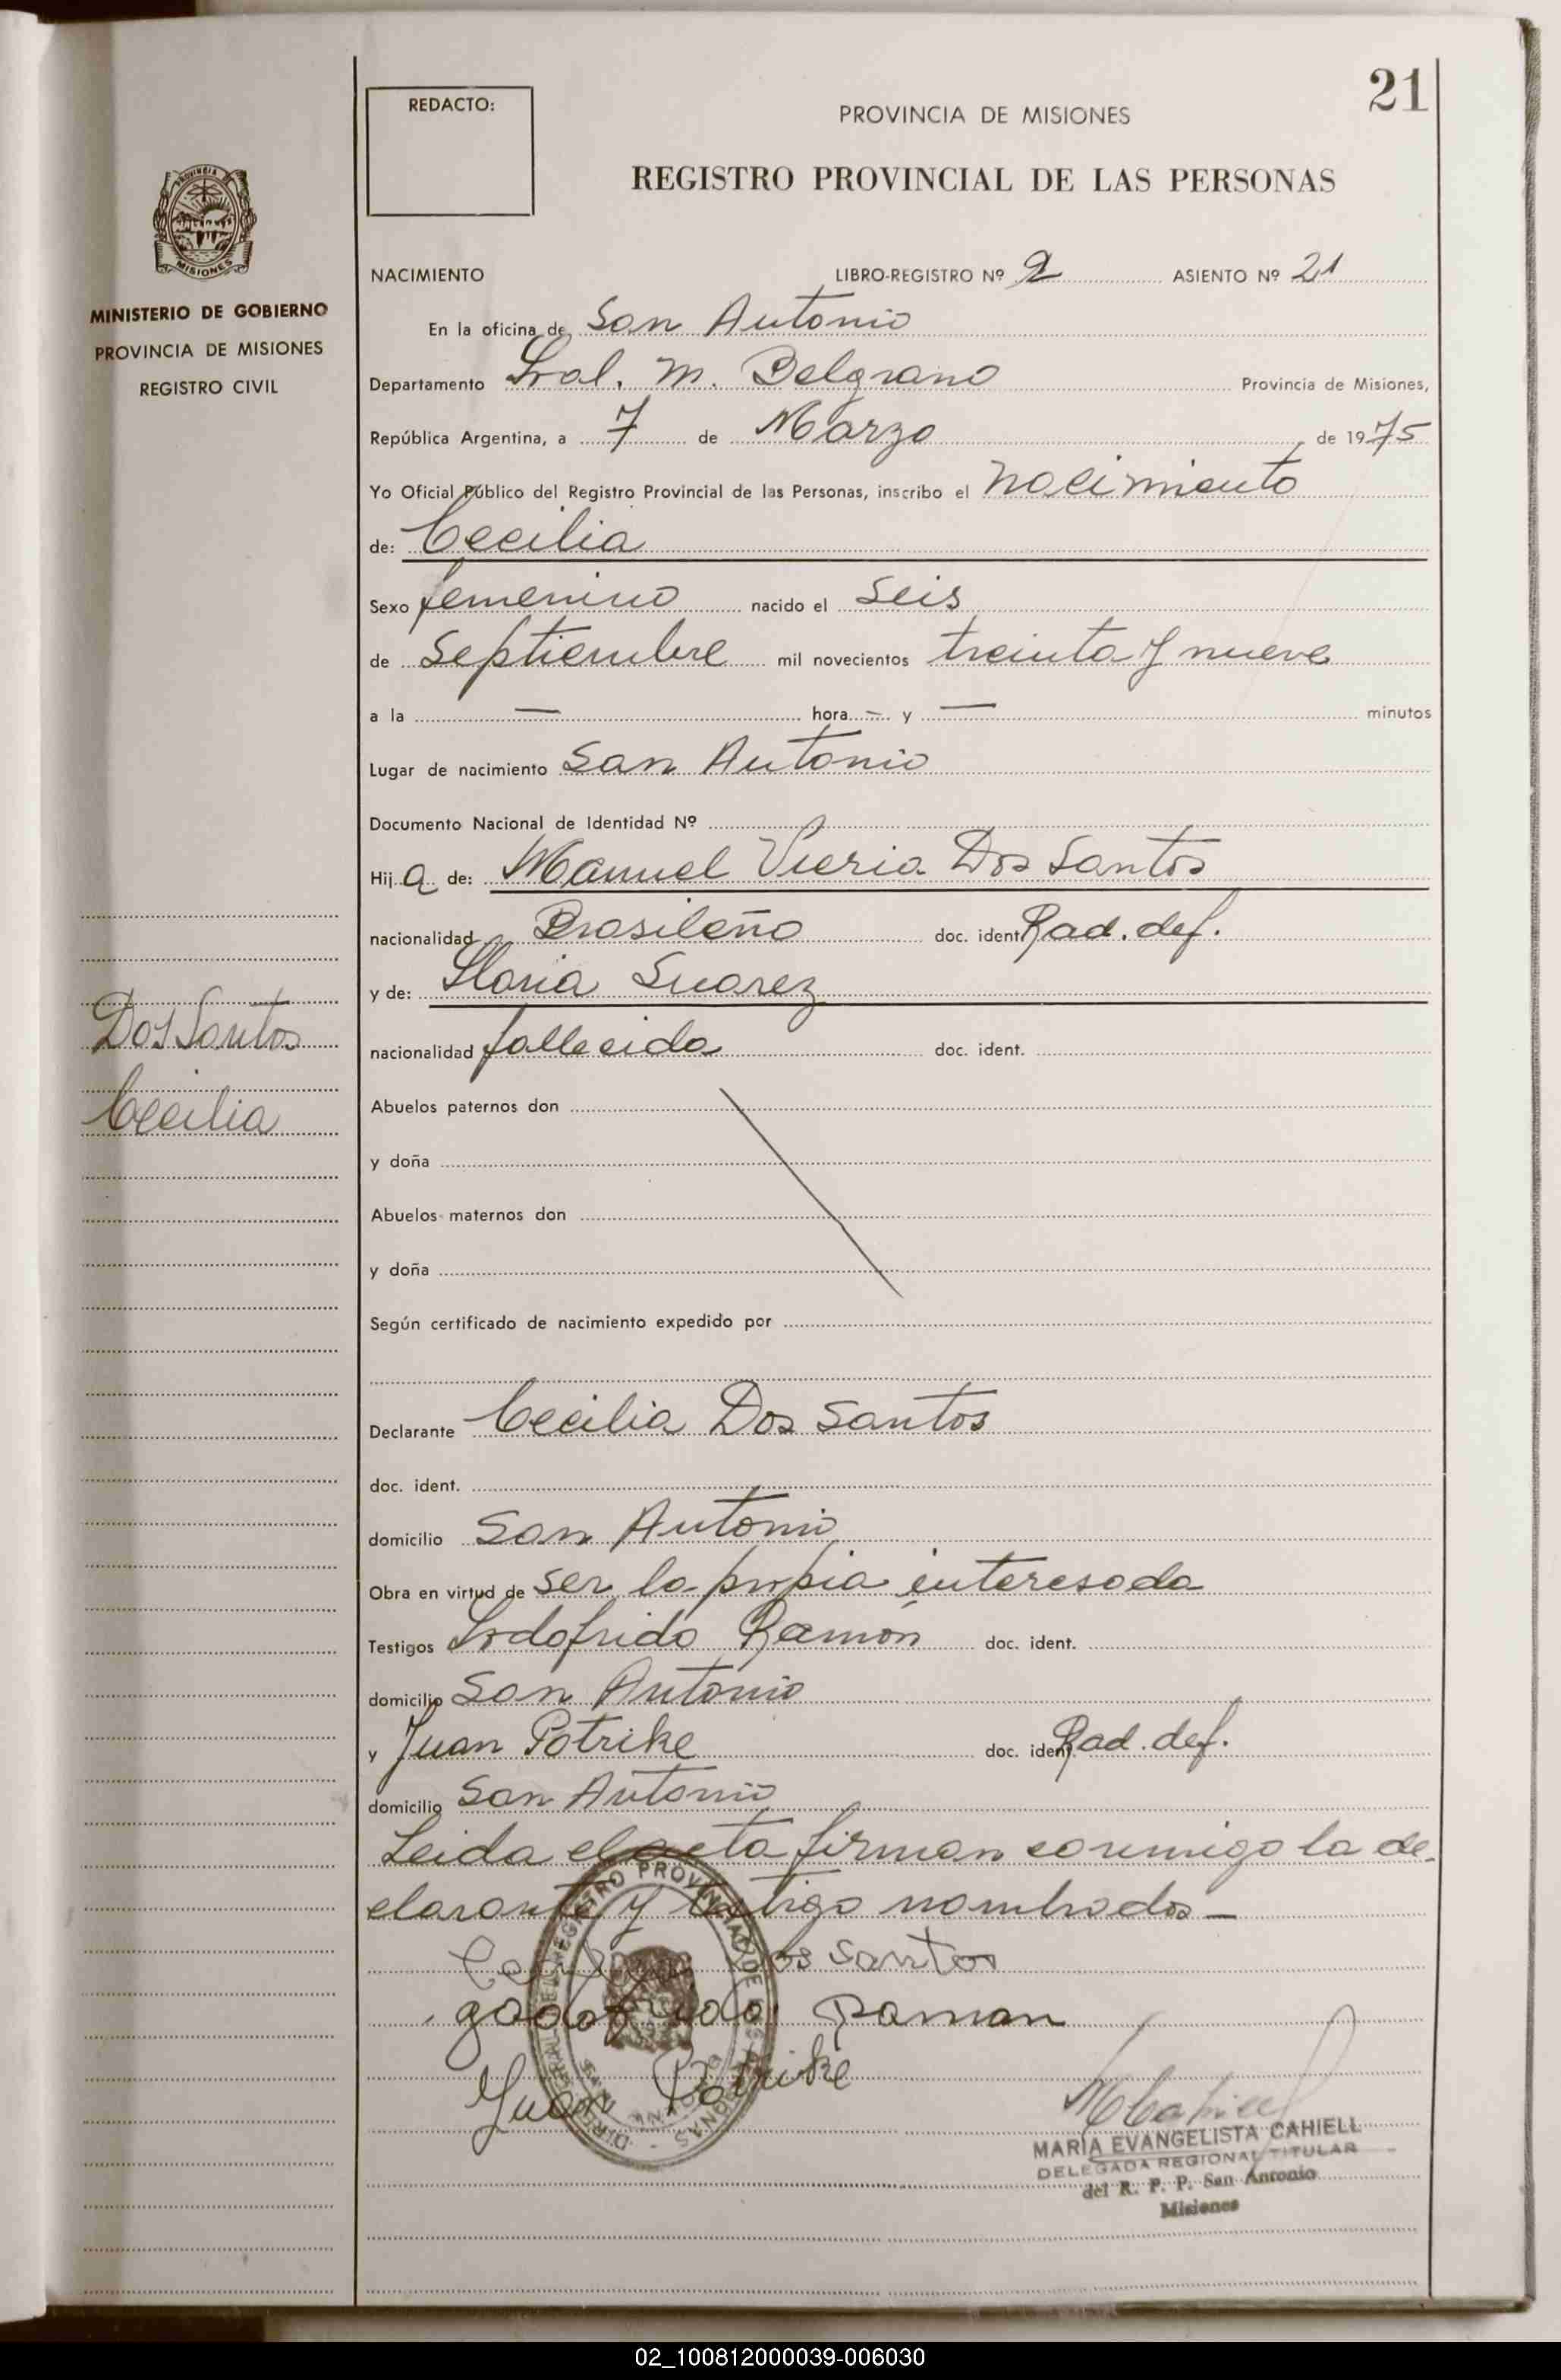 21
REDACTO:
PROVINCIA DE MISIONES
REGISTRO PROVINCIAL DE LAS PERSONAS
PROVINCIA DE
MISIONES
MINISTERIO DE GOBIERNO
PROVINCIA DE MISIONES
REGISTRO CIVIL
NACIMIENTO LIBRO-REGISTRO Nº 2 ASIENTO Nº 21
En la oficina de San Antonio
Departamento Gral. M. Belgrano Provincia de Misiones,
República Argentina, a 7 de Marzo de 1975
Yo Oficial Público del Registro Provincial de las Personas, inscribo el nacimiento
de: Cecilia
Sexo femenino nacido el seis
de septiembre mil novecientos treinta y nueve
a la — hora — y — minutos
Lugar de nacimiento San Antonio
Documento Nacional de Identidad Nº
Hija de: Manuel Vieria Dos Santos
nacionalidad Brasileño doc. ident. Rad. def.
y de: Gloria Suarez
nacionalidad fallecida doc. ident.
Dos Santos
Cecilia
Abuelos paternos don
y doña
Abuelos maternos don
y doña
Según certificado de nacimiento expedido por
Declarante Cecilia Dos Santos
doc. ident.
domicilio San Antonio
Obra en virtud de ser la propia interesada
Testigos Godofrido Ramón doc. ident.
domicilio San Antonio
y Juan Potrike doc. ident. Rad. def.
domicilio San Antonio
Leida el acta firman conmigo la de-
clarante y testigo nombrados —
Dos Santos
godofrido Raman
Juan Potrike
MCahiell
MARIA EVANGELISTA CAHIELL
DELEGADA REGIONAL TITULAR
del R. P. P. San Antonio
Misiones
02_100812000039-006030